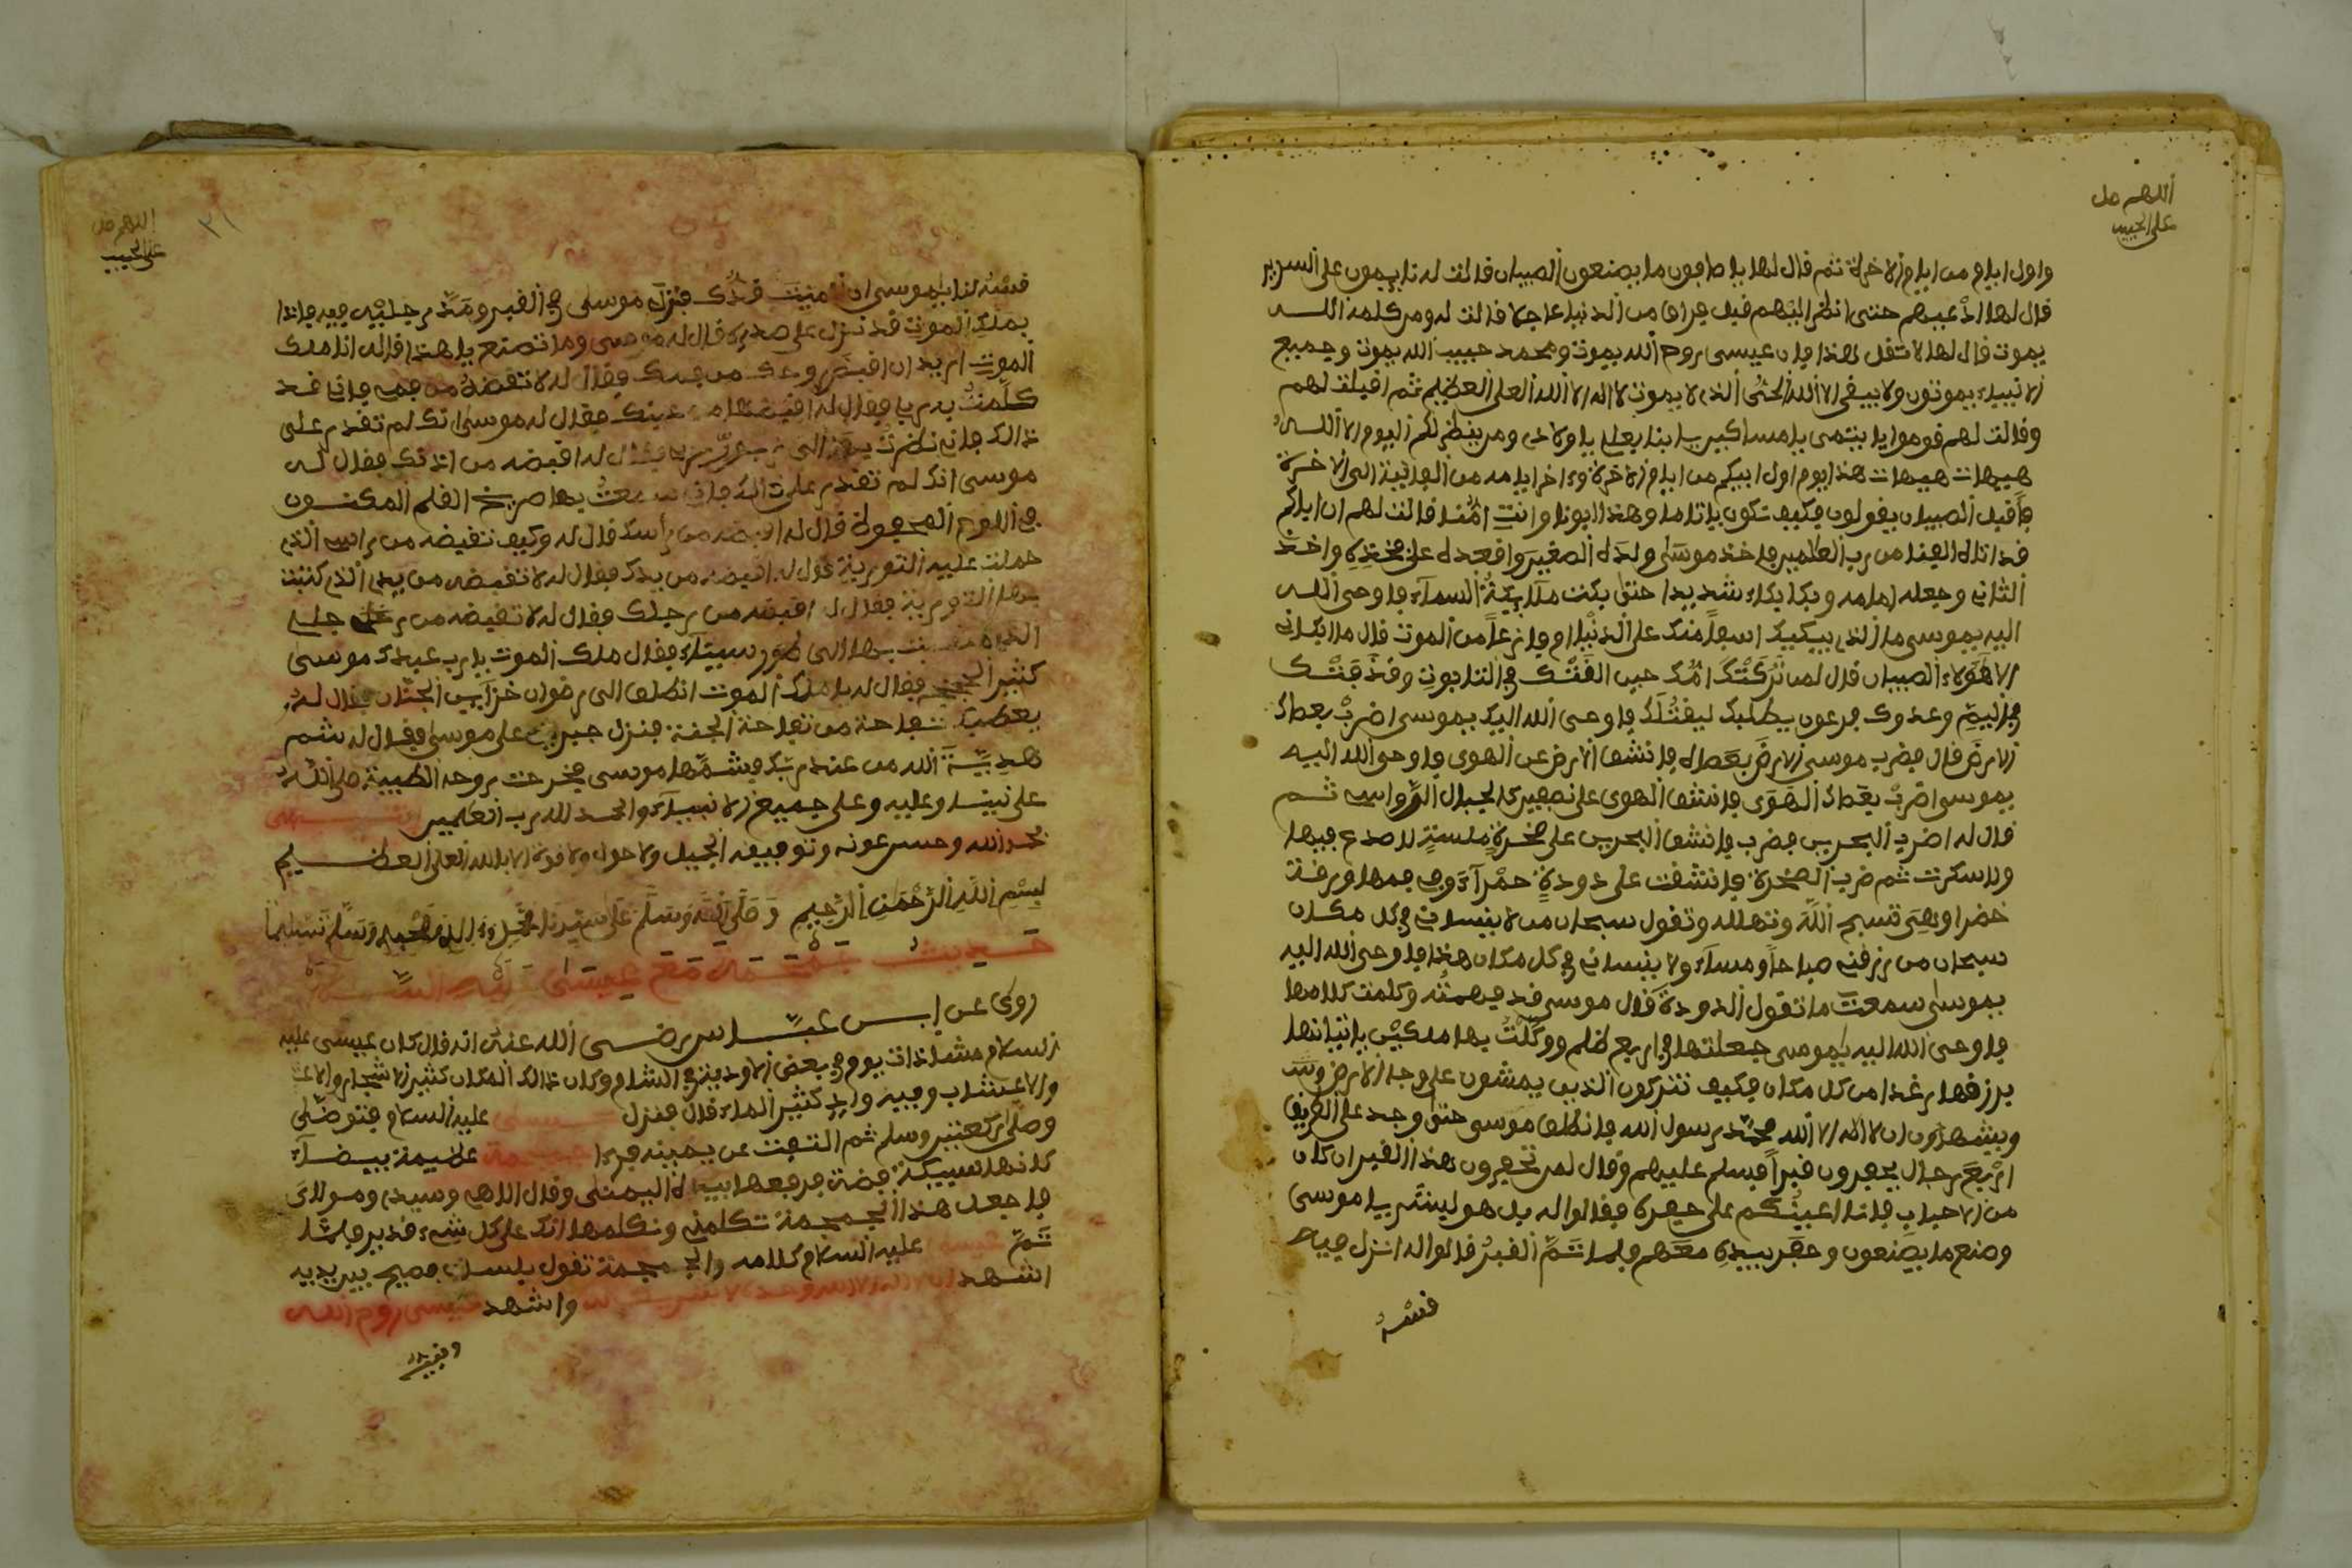 اللهم صل
على الحبيب
واول ايام من ايام الاخرة ثم قال لها يا صافون ما يصنعون الصبيان قالت له نايمون على السرير
قال لها ادعيهم حتى انظر اليهم قبل فراق من الدنيا عاجلا قالت له ومن كلمه الله
يموت قال لها لا تقل هذا فان عيسى روح الله يموت ومحمد حبيب الله يموت وجميع
الانبياء يموتون ولا يبقى الا الله الحي الذي لا يموت لا اله الا الله العلي العظيم ثم اقبلت لهم
وقالت لهم قوموا يا يتمى يا مساكير يا ولادي ومن ينظر لكم اليوم الا الله
هيهات هيهات هذا يوم اول ابيكم من ايام الاخرة واخر ايامه من الفانية الى الاخرة
فاقبل الصبيان يقولون فكيف نكون يا اماه وهذا ابونا وانت امنا قالت لهم ان اباكم
قد اتاه اليقين من رب العلمين فاخذ موسى ولده الصغير واقعده على فخذه واخذ
الثاني وجعله امامه وبكا بكاء شديدا حتى بكت ملايكة السماء فاوحى الله
اليه يموسى ما الذي يبكيك اسفا منك على الدنيا ام فازعا من الموت قال ما ابكاني
الا هولاء الصبيان قال لمن تركتك امك حين القتك في التابوت وقذفتك
في اليم وعدوك فرعون يطلبك ليقتلك فاوحى الله اليه يموسى اضرب بعصاك
الارض قال فضرب موسى الارض بعصاه فانشق الارض عن الهوى فاوحى الله اليه
يموسى اضرب بعصاك الهوى فانشق الهوى على الجبال الرواسي ثم
قال له اضرب البحرين فضرب فانشق البحرين على صخرة ملسة لا صدع فيها
ولا سكرت ثم ضرب الصخرة فانشقت على دودة حمراء وفي فمها ورقة
خضرا وهي تسبح الله وتهلله وتقول سبحان من لا ينساني في كل مكان
سبحان من رزقني صباحا ومساء ولا ينساني في كل مكان هذا فاوحى الله اليه
يموسى سمعت ما تقول الدودة قال موسى قد فهمته وكلمت كلامها
فاوحى الله اليه يموسى جعلتها في اربع ظلم ووكلت بها ملكين ياتيانها
برزقها رغدا من كل مكان فكيف تتركون الذين يمشون على وجه الارض
ويشهدون ان لا اله الا الله محمد رسول الله فانطلق موسى حتى وجد على الطريق
اربع رجال يحفرون قبرا فسلم عليهم وقال لمن تحفرون هذا القبر ان كان
من الاحباب فانا اعينكم على حفره فقالوا له بل هو ليشر يا موسى
وصنع ما يصنعون وحفر بيده معهم فلما تم القبر قالوا له انزل فيه
قسه
اللهم صل
على الحبيب
٣١
قسه لنا يموسى ان منيت قدك فنزل موسى في القبر ومد رجليه فيه فاذا
بملك الموت قد نزل على صدره قال له موسى وما تصنع يا هذا قال له انا ملك
الموت اريد ان اقبض روحك من فمك فقال له لا تقبضه من فمي فاني قد
كلمت به ربي فقال له اقبضها من عينك فقال له موسى انك لم تقدر على
ذالك فاني نظرت بها الى فقال له اقبضه من اذنك فقال له
موسى انك لم تقدر على ذالك فاني سمعت بها صريخ القلم المكنون
في اللوح المحفوظ قال له اقبضه من رأسك قال له وكيف تقبضه من راسي الذي
حملت عليه التورية قال له اقبضه من يدك فقال له لا تقبضه من يدي الذي كتبت
بها التورية فقال له اقبضه من رجلك فقال له لا تقبضه من رجلي
الذي بها الى طور سيناء فقال ملك الموت يا رب عبدك موسى
كثير فقال له يا ملك الموت انطلق الى رضوان خزاين الجنان فقال له
يعطيك تفاحة من تفاحة الجنة فنزل جبريل على موسى فقال له شم
هدية الله من عند ربك فشمها موسى فخرجت روحه الطيبة صلى الله
على نبينا وعليه وعلى جميع الانبياء والحمد لله رب العلمين انتهى
بحمد الله وحسن عونه وتوفيقه الجميل ولا حول ولا قوة الا بالله العلي العظيم
بسم الله الرحمن الرحيم وصلى الله وسلم على سيدنا محمد واله وصحبه وسلم تسليما
حديث جمجمة مع عيسى عليه السلام
روي عن ابن عباس رضي الله عنه انه قال كان عيسى عليه
السلام مشا ذات يوم في بعض الاودية في الشام وكان ذالك المكان كثير الاشجار
والاعشاب وفيه واد كثير الماء قال فنزل عيسى عليه السلام فتوضى
وصلى ركعتين وسلم ثم التفت عن يمينه فرءا جمجمة عظيمة بيضاء
كانها سبيكة فضة فرفعها بيده اليمنى وقال اللهم وسيدي ومولاي
فاجعل هذا الجمجمة تكلمني ونكلمها انك على كل شيء قدير فلما
تم عيسى عليه السلام كلامه والجمجمة تقول بلسان فصيح بين يديه
اشهد ان لا اله الا الله وحده لا شريك له واشهد عيسى روح الله